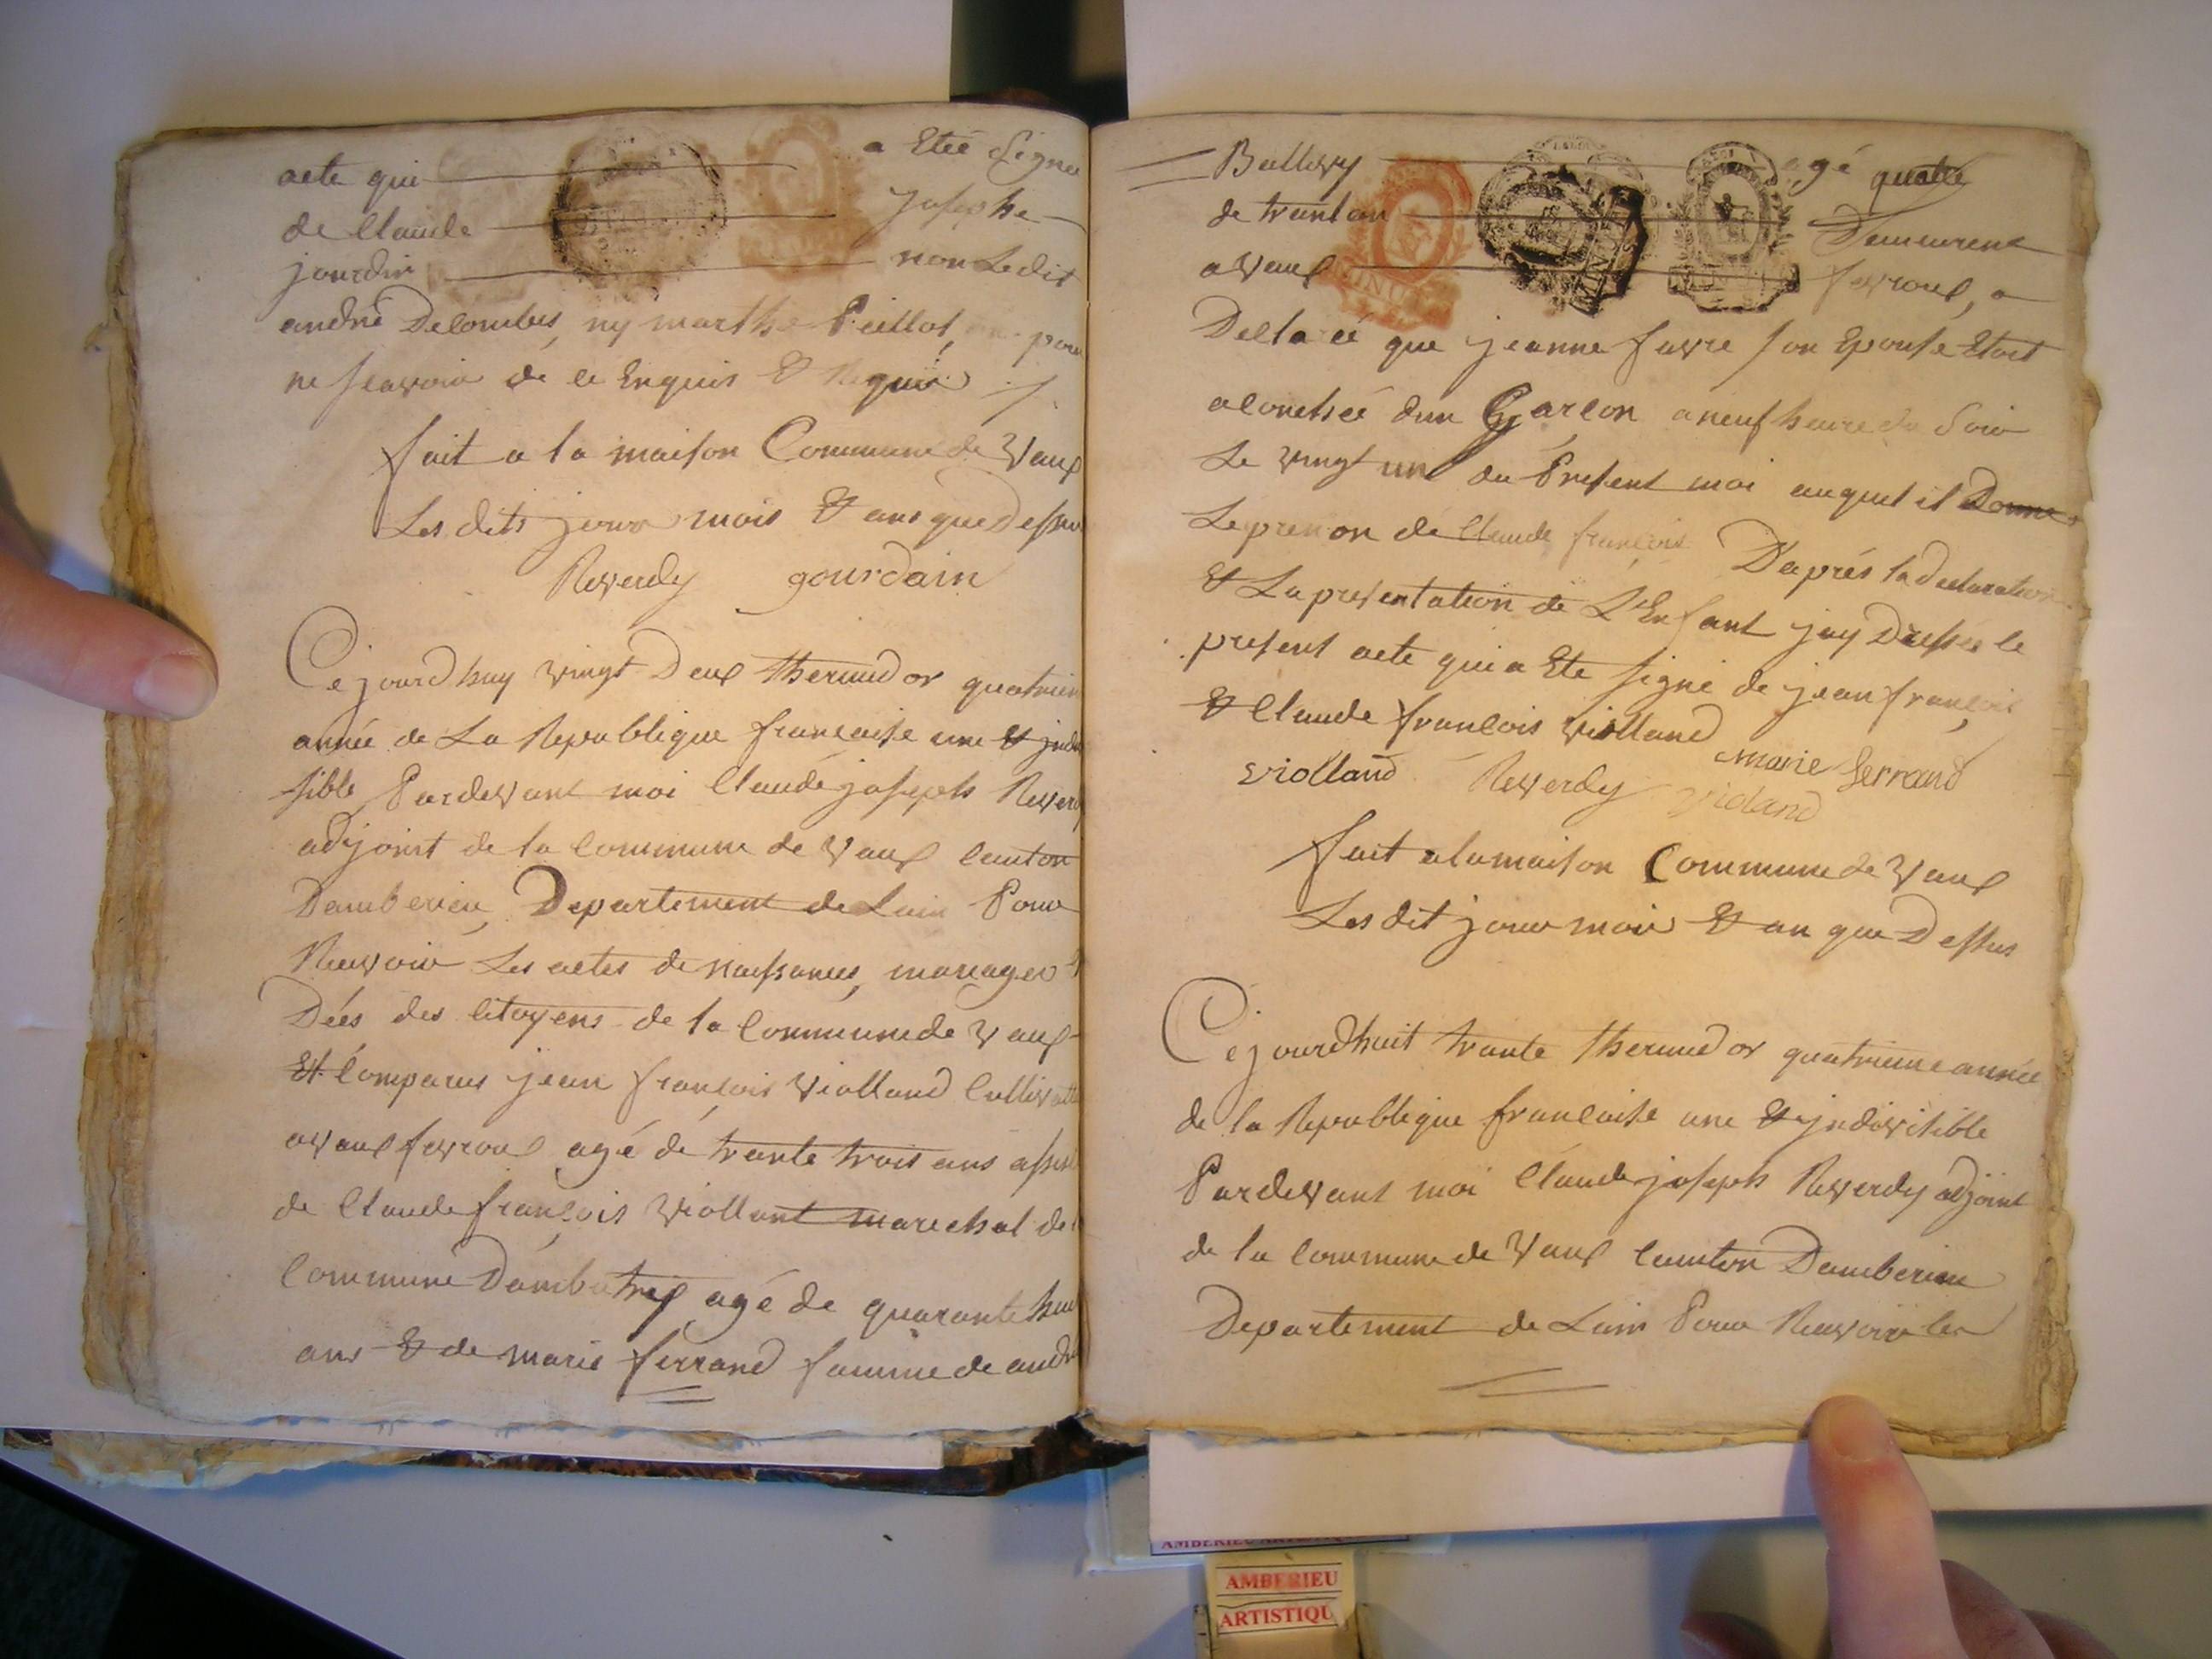 acte qui a Eteé Signée
de Claude Josephe
jourdin non Ledit
andré Delombes, ny marthe Peillot, pour
ne scavoir de ce Enquis & Requis
fait a la maison Commune de Vaux
Les dits jour mois & ans que Dessus
Reverdy gourdain
Cejourdhuy vingt Deux thermidor quatrien
année de La Republique francaise une & jndi
sible Pardevant moi Claude joseph Reverdy
adjoint de la Commune de Vaux Canton
Damberieu, Departement de Lain Pour
Recevoir Les actes de naissances, mariages
Déés des Citoyens de la Commune de Vaux
Et Comparus jean francois Violland Cultivat
a vaux fevroux agé de trante trois ans assist
de Claude francois Viollant marechal de
Commune Dambutrix agé de quarante hui
ans & de marie ferrand famme de andré
Bullivy agé quatre
de trantan Demeurent
a Vaux fevroux, a
Declaréé que jeanne favre son Epouse Etoit
acouchéé dun Garcon a neuf heure du Soir
Le vingt un du Present moi auquel il Donne
Le prenon de Claude francois D'aprés la declaration
& La presentation de L'Enfant jay Dressée le
present acte qui a Ete signé de jean francois
& Claude francois violland marie ferrand
violland Reverdy violand
fait a la maison Commune de Vaux
Les dit jour mois & an que Dessus
Cejourdhuit trante thermidor quatrieme année
de la Republique francaise une & jndivisible
Pardevant moi Claude joseph Reverdy adjoint
de la Commune de Vaux Canton Damberieu
Departement de Lain Pour Recevoir les
AMBERIEU ARTISTIQU
AMBERIEU
ARTISTIQU